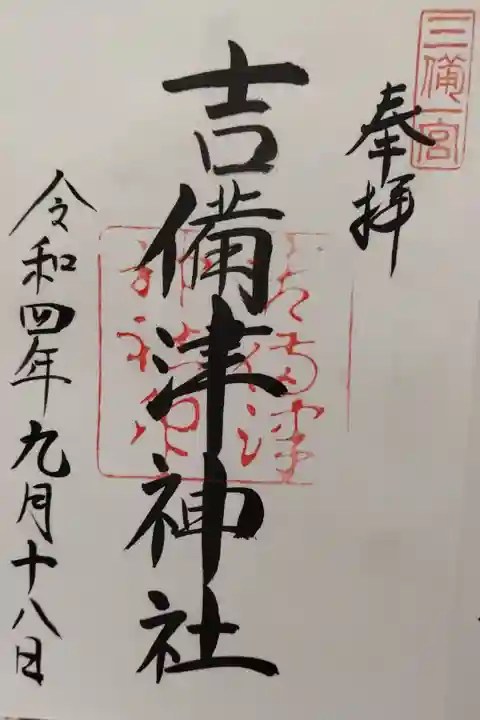 三備一宮
奉拝
吉備津神社
令和四年九月十八日